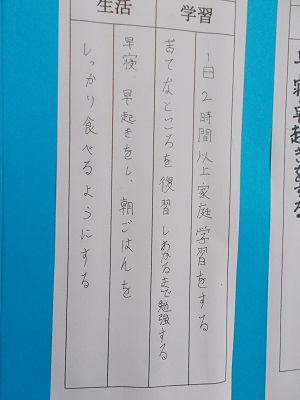 学習
一日2時間以上家庭学習をする
苦てなところを復習しわかるまで勉強する
生活
早寝早起きをし、朝ごはんを
しっかり食べるようにする